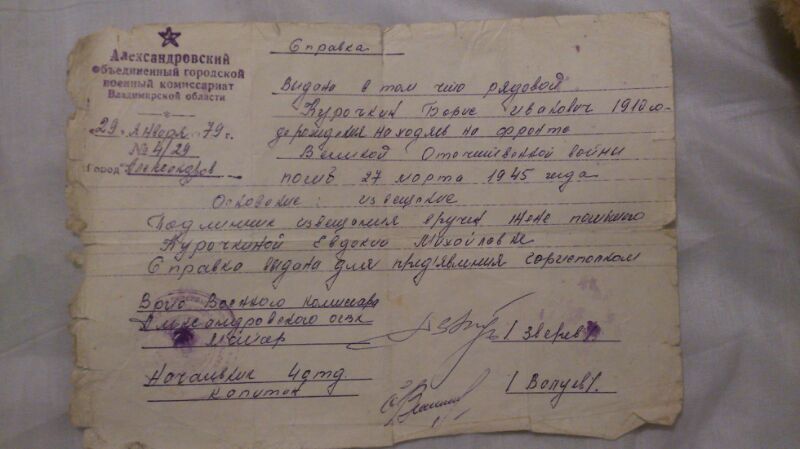 Александровский
объединенный городской
военный комиссариат
Владимирской области
29 января 79 г.
№ 4/29
Город Александров
Справка
Выдана в том что рядовой
Курочкин Борис Иванович 1910 го-
да рождения находясь на фронте
Великой Отечественной войны
погиб 27 марта 1945 года
Основание: извещение
Подлинник извещения вручен жене
Курочкиной Евдокие Михайловне
Справка выдана для предъявления горисполком
Военного комиссара
Александровского ОГВК
майор
/ Зверев /
Начальник 4 отд.
капитан
/ Валуев /.